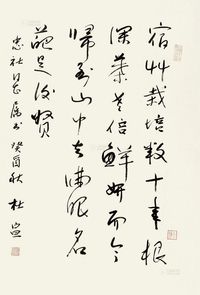 宿草栽培数十年根
深叶老倍鲜妍而今
归到山中去佛眼名
葩是后贤
忠社同志属书 癸酉秋 杜宣